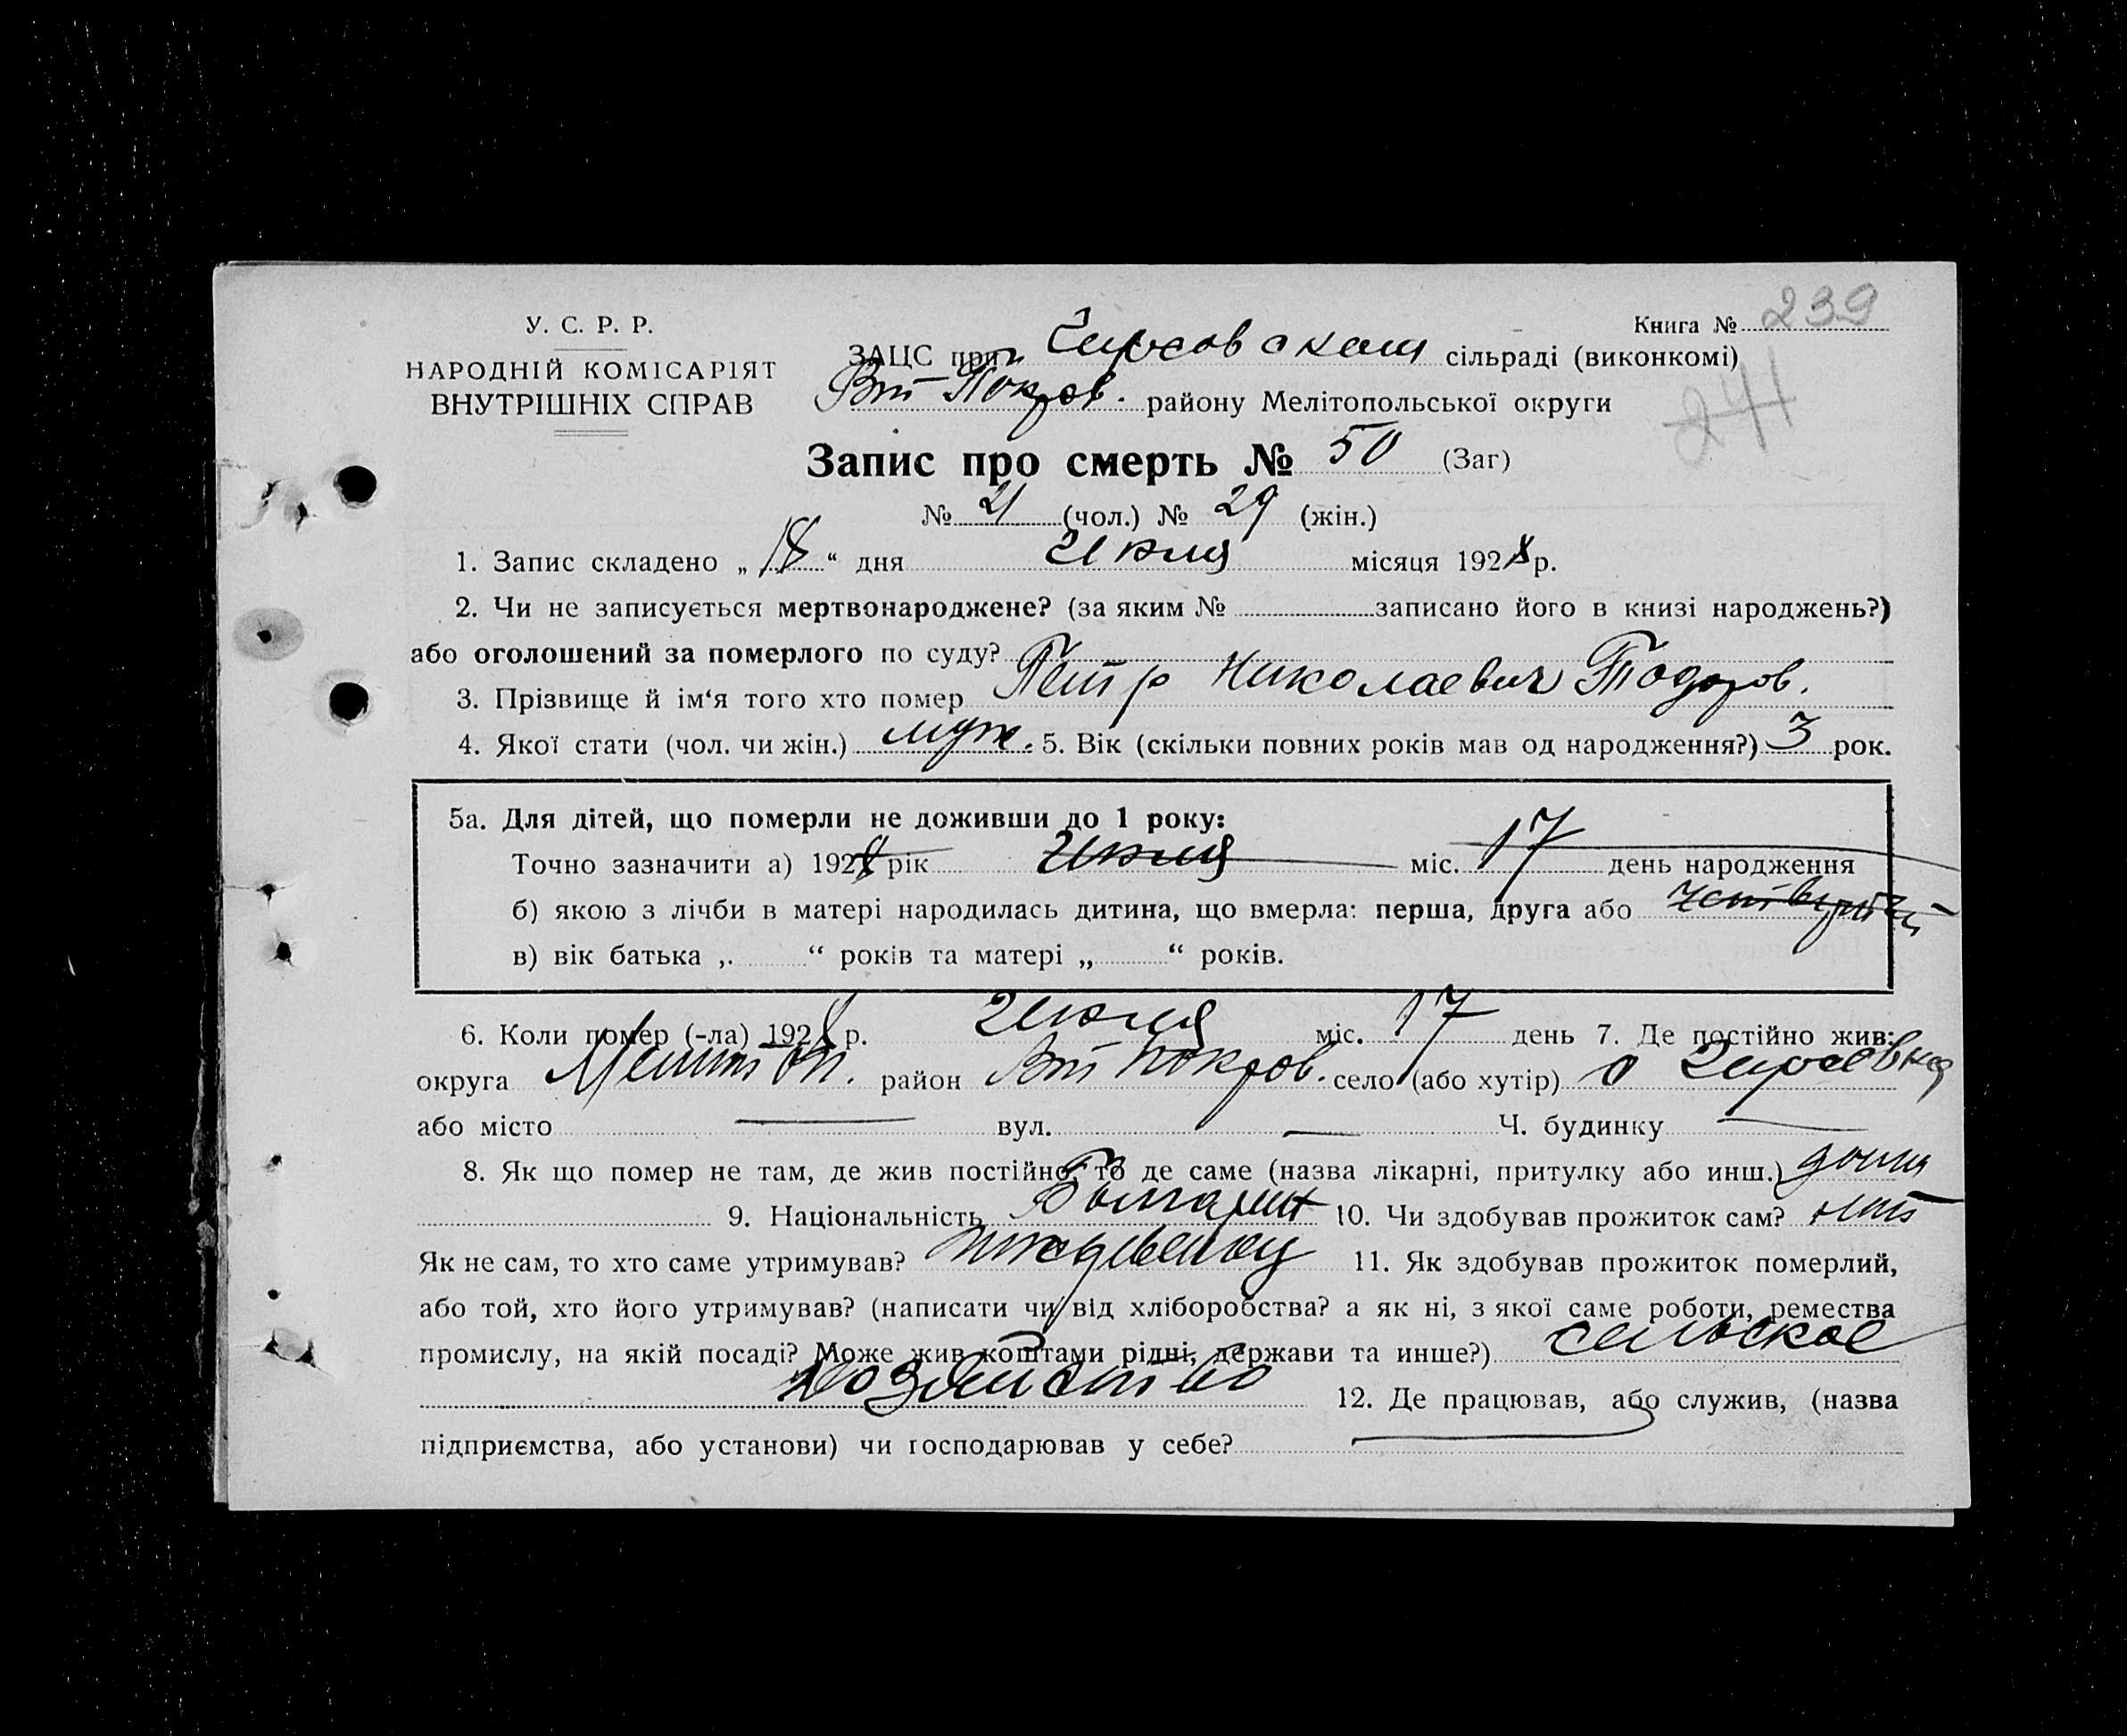 У. С. Р. Р.
НАРОДНІЙ КОМІСАРІЯТ
ВНУТРІШНІХ СПРАВ
Книга № 239
241
ЗАЦС при Гирсовском сільраді (виконкомі)
Вт Покров. району Мелітопольської округи
Запис про смерть № 50 (Заг)
№ 21 (чол.) № 29 (жін.)
1. Запис складено „18“ дня Июля місяця 1928 р.
2. Чи не записується мертвонароджене? (за яким № записано його в книзі народжень?)
або оголошений за померлого по суду?
3. Прізвище й ім‘я того хто помер Петр Николаевич Тодоров.
4. Якої стати (чол. чи жін.) муж. 5. Вік (скільки повних років мав од народження?) 3 рок.
5а. Для дітей, що померли не доживши до 1 року:
Точно зазначити а) 1928 рік Июля міс. 17 день народження
б) якою з лічби в матері народилась дитина, що вмерла: перша, друга або четвертий
в) вік батька „ “ років та матері „ “ років.
6. Коли помер (-ла) 1928 р. Июля міс. 17 день 7. Де постійно жив:
округа Мелитоп. район Вт Покров. село (або хутір) с Гирсовка
або місто — вул. — Ч. будинку —
8. Як що помер не там, де жив постійно, то де саме (назва лікарні, притулку або инш.) дома
9. Національність Болгарин 10. Чи здобував прожиток сам? нет
Як не сам, то хто саме утримував? иждевенец 11. Як здобував прожиток померлий,
або той, хто його утримував? (написати чи від хліборобства? а як ні, з якої саме роботи, ремества
промислу, на якій посаді? Може жив коштами рідні, держави та инше?) сельское
хозяйство 12. Де працював, або служив, (назва
підприємства, або установи) чи господарював у себе? —